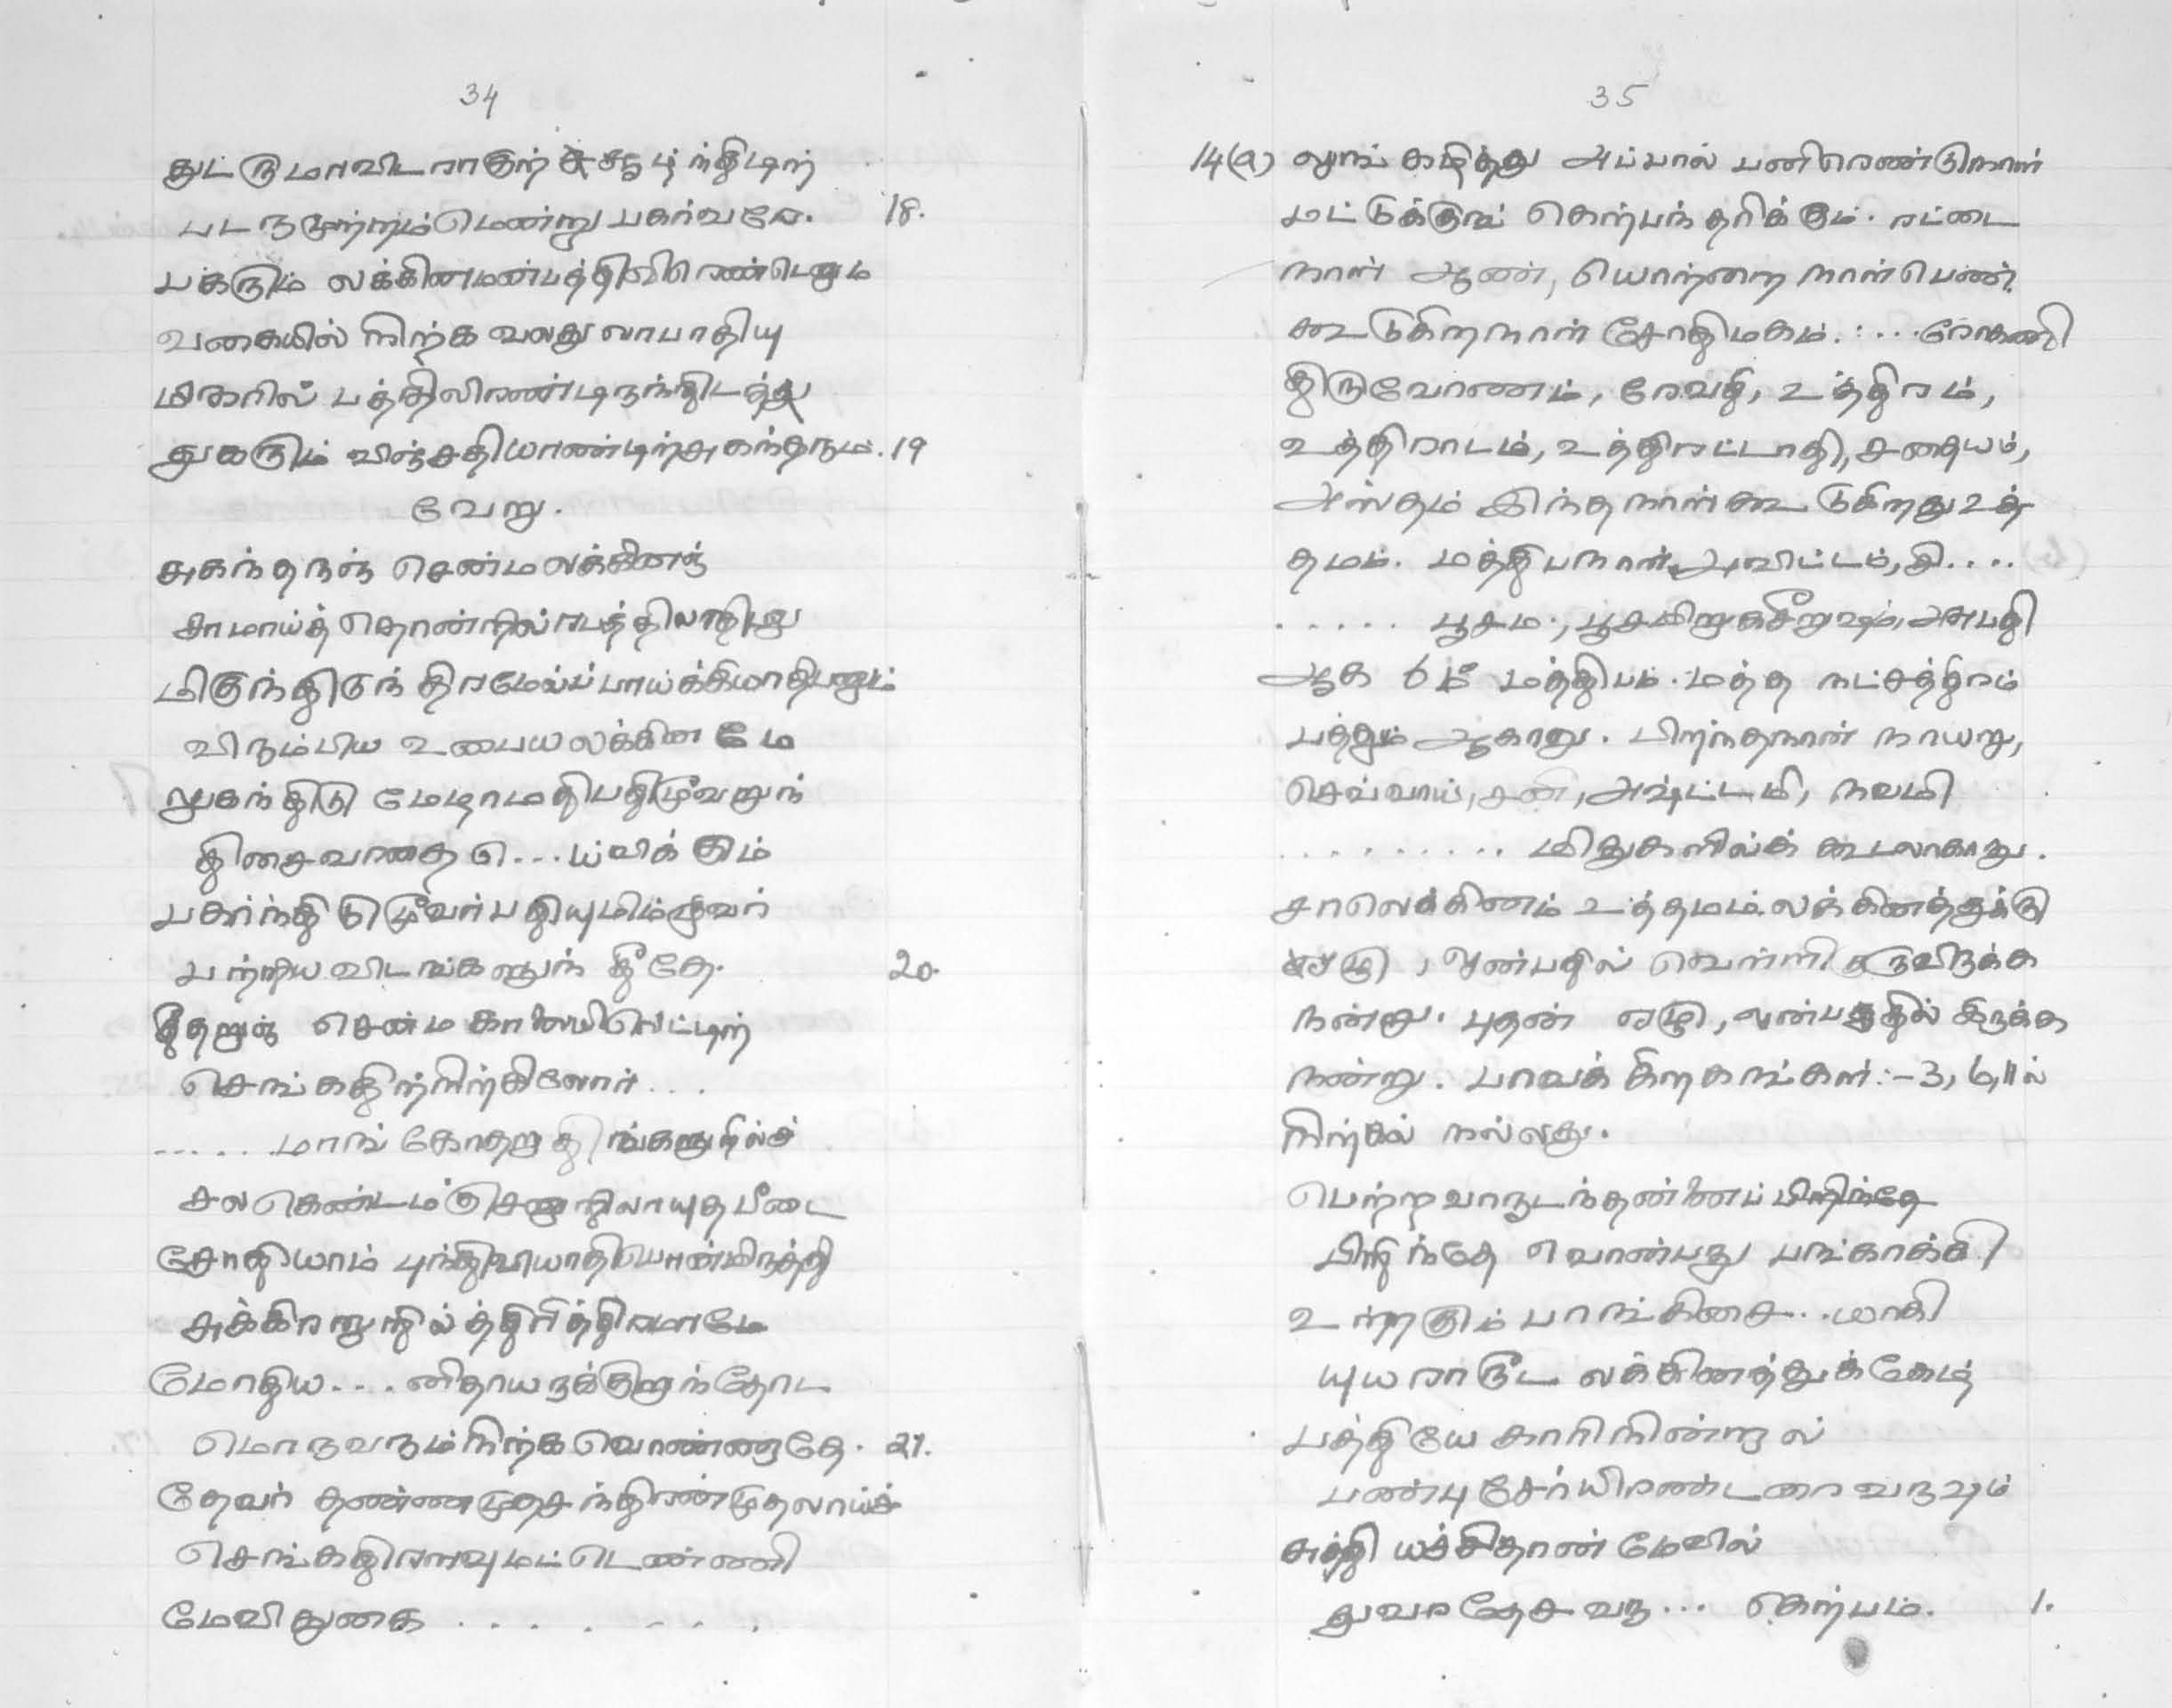 34
படருமுற்றும்மென்று பகர்வரே. 18.
பகரும் லக்கினமன்பத்திலிரெண்டெழும
வகையில் நிற்க வலது லாபாதியு
மிகரில் பத்திலிரண்டிருந்திடத்து
துகரும் விஞ்சதியாண்டிற்சுகந்தரும். 19
வேறு.
சுகந்தருஞ் சென்மலக்கினஞ்
சாமாய்த் தொன்றில்
விரும்பிய உபைய லக்கின மே
திசைவாதை ...ய்விக் கும்
பகர்ந்திடுமூவர்பதியுமிம்மூவர்
பற்றிய விடங்களுந் தீதே. 20.
தீதறுஞ் சென்ம காலையிலெட்டிற்
செங்கதிர்நிற்கிலோர் ...
...... மாங் கோதறு திங்களுறில்ச்
சலகெண்டம்குசனுறிலாயுதபீடை
சோதியாம் புந்திவியாதிபொன்மிருத்தி
சுக்கிரனுறில்த்திரித்திரமாமே
மோதிய ... னிதாயநக்குறுந்தோட
மொருவரும்நிற்க வொண்ணாதே. 21.
தேவர் தண்ணமுதசந்திரன்முதலாய்ச்
செங்கதிரளவுமட்டெண்ணி
மேவிதுகை . . . . . . .
35
14(a) லுாங் கழித்து அப்பால் பனிரெண்டுநாள்
மட்டுக்குங் கெற்பந் தரிக்கும். ரட்டை
நாள் ஆண், யொற்றை நாள் பெண்.
கூடுகிறநாள் சோதிமகம். : ... ரோகணி
திருவோணம், ரேவதி, உத்திரம்,
உத்திராடம், உத்திரட்டாதி, சதையம்,
அஸ்தம் இந்தநாள் கூடுகிறது உத்
தமம். மத்திபநாள் அவிட்டம், தி....
..... பூசம்., பூசமிறுகசீறுஷம், அசுபதி
ஆக 6ம் மத்திபம். மத்த நட்சத்திரம்
பத்தும் ஆகாது. பிறந்தநாள் நாயறு,
செவ்வாய், சனி, அஷ்ட்டமி, நவமி
.......... மிதுகளில்க் கூடலாகாது.
சாலெக்கினம் உத்தமம். லக்கினத்துக்கு
ஏழு, ஒன்பதில் வெள்ளி குருவிருக்க
நன்று. புதன் ஏழு, ஒன்பதில் இருக்க
நன்று. பாவக் கிறகங்கள்:- 3, 6, 11ல்
நிற்கல் நல்லது.
பெற்றவாருடந்தன்னைப் பிரிந்தே
பிரிந்தே வொன்பது பங்காக்கி
உற்றகும் பாங்கிசை..யாகி
யுயராரூட லக்கினத்துக் கேழ்
பத்தியே காரிநின்றால்
பண்பு சேர்யிரண்டரை வருஷம்
சுத்தி யச்சிதான் மேவில்
துவாதேச வரு... கெற்பம். 1.